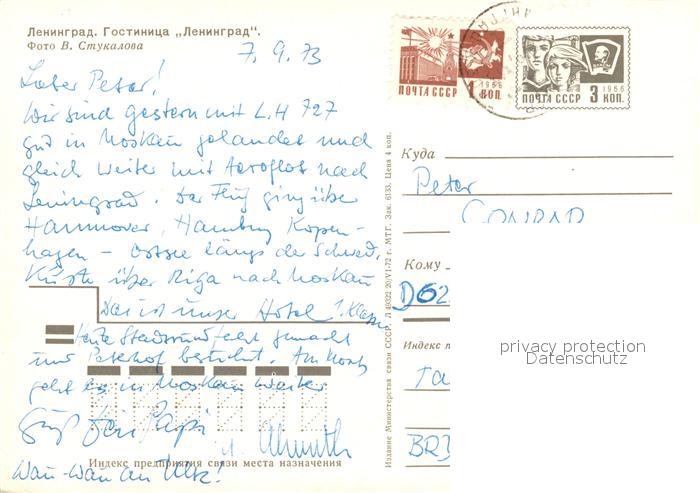 Ленинград. Гостиница „Ленинград".
Фото В. Стукалова
7.9.73
Lieber Peter!
Wir sind gestern mit LH 727
gut in Moskau gelandet und
gleich weiter mit Aeroflot nach
Leningrad. Der Flug ging über
Hannover, Hamburg Kopen-
hagen – Ostsee längs der Schwed.
Küste über Riga nach Moskau
Das ist unser Hotel! 1. Klasse
Heute Stadtrundfahrt gemacht
und Peterhof besichtigt. Am
geht es in Moskau weiter
Gruß Dein Papi
u. Almuth
Wau-Wau an Ulk!
Индекс предприятия связи места назначения
Издание Министерства связи СССР. Л 49322 20/VI-72 г. МТГ. Зак. 6133. Цена 4 коп.
1966
ПОЧТА СССР 1 КОП.
1966
ПОЧТА СССР 3 КОП.
Куда
Peter
CONRAD
Кому
D62
Индекс п
Ta
BRD
privacy protection
Datenschutz